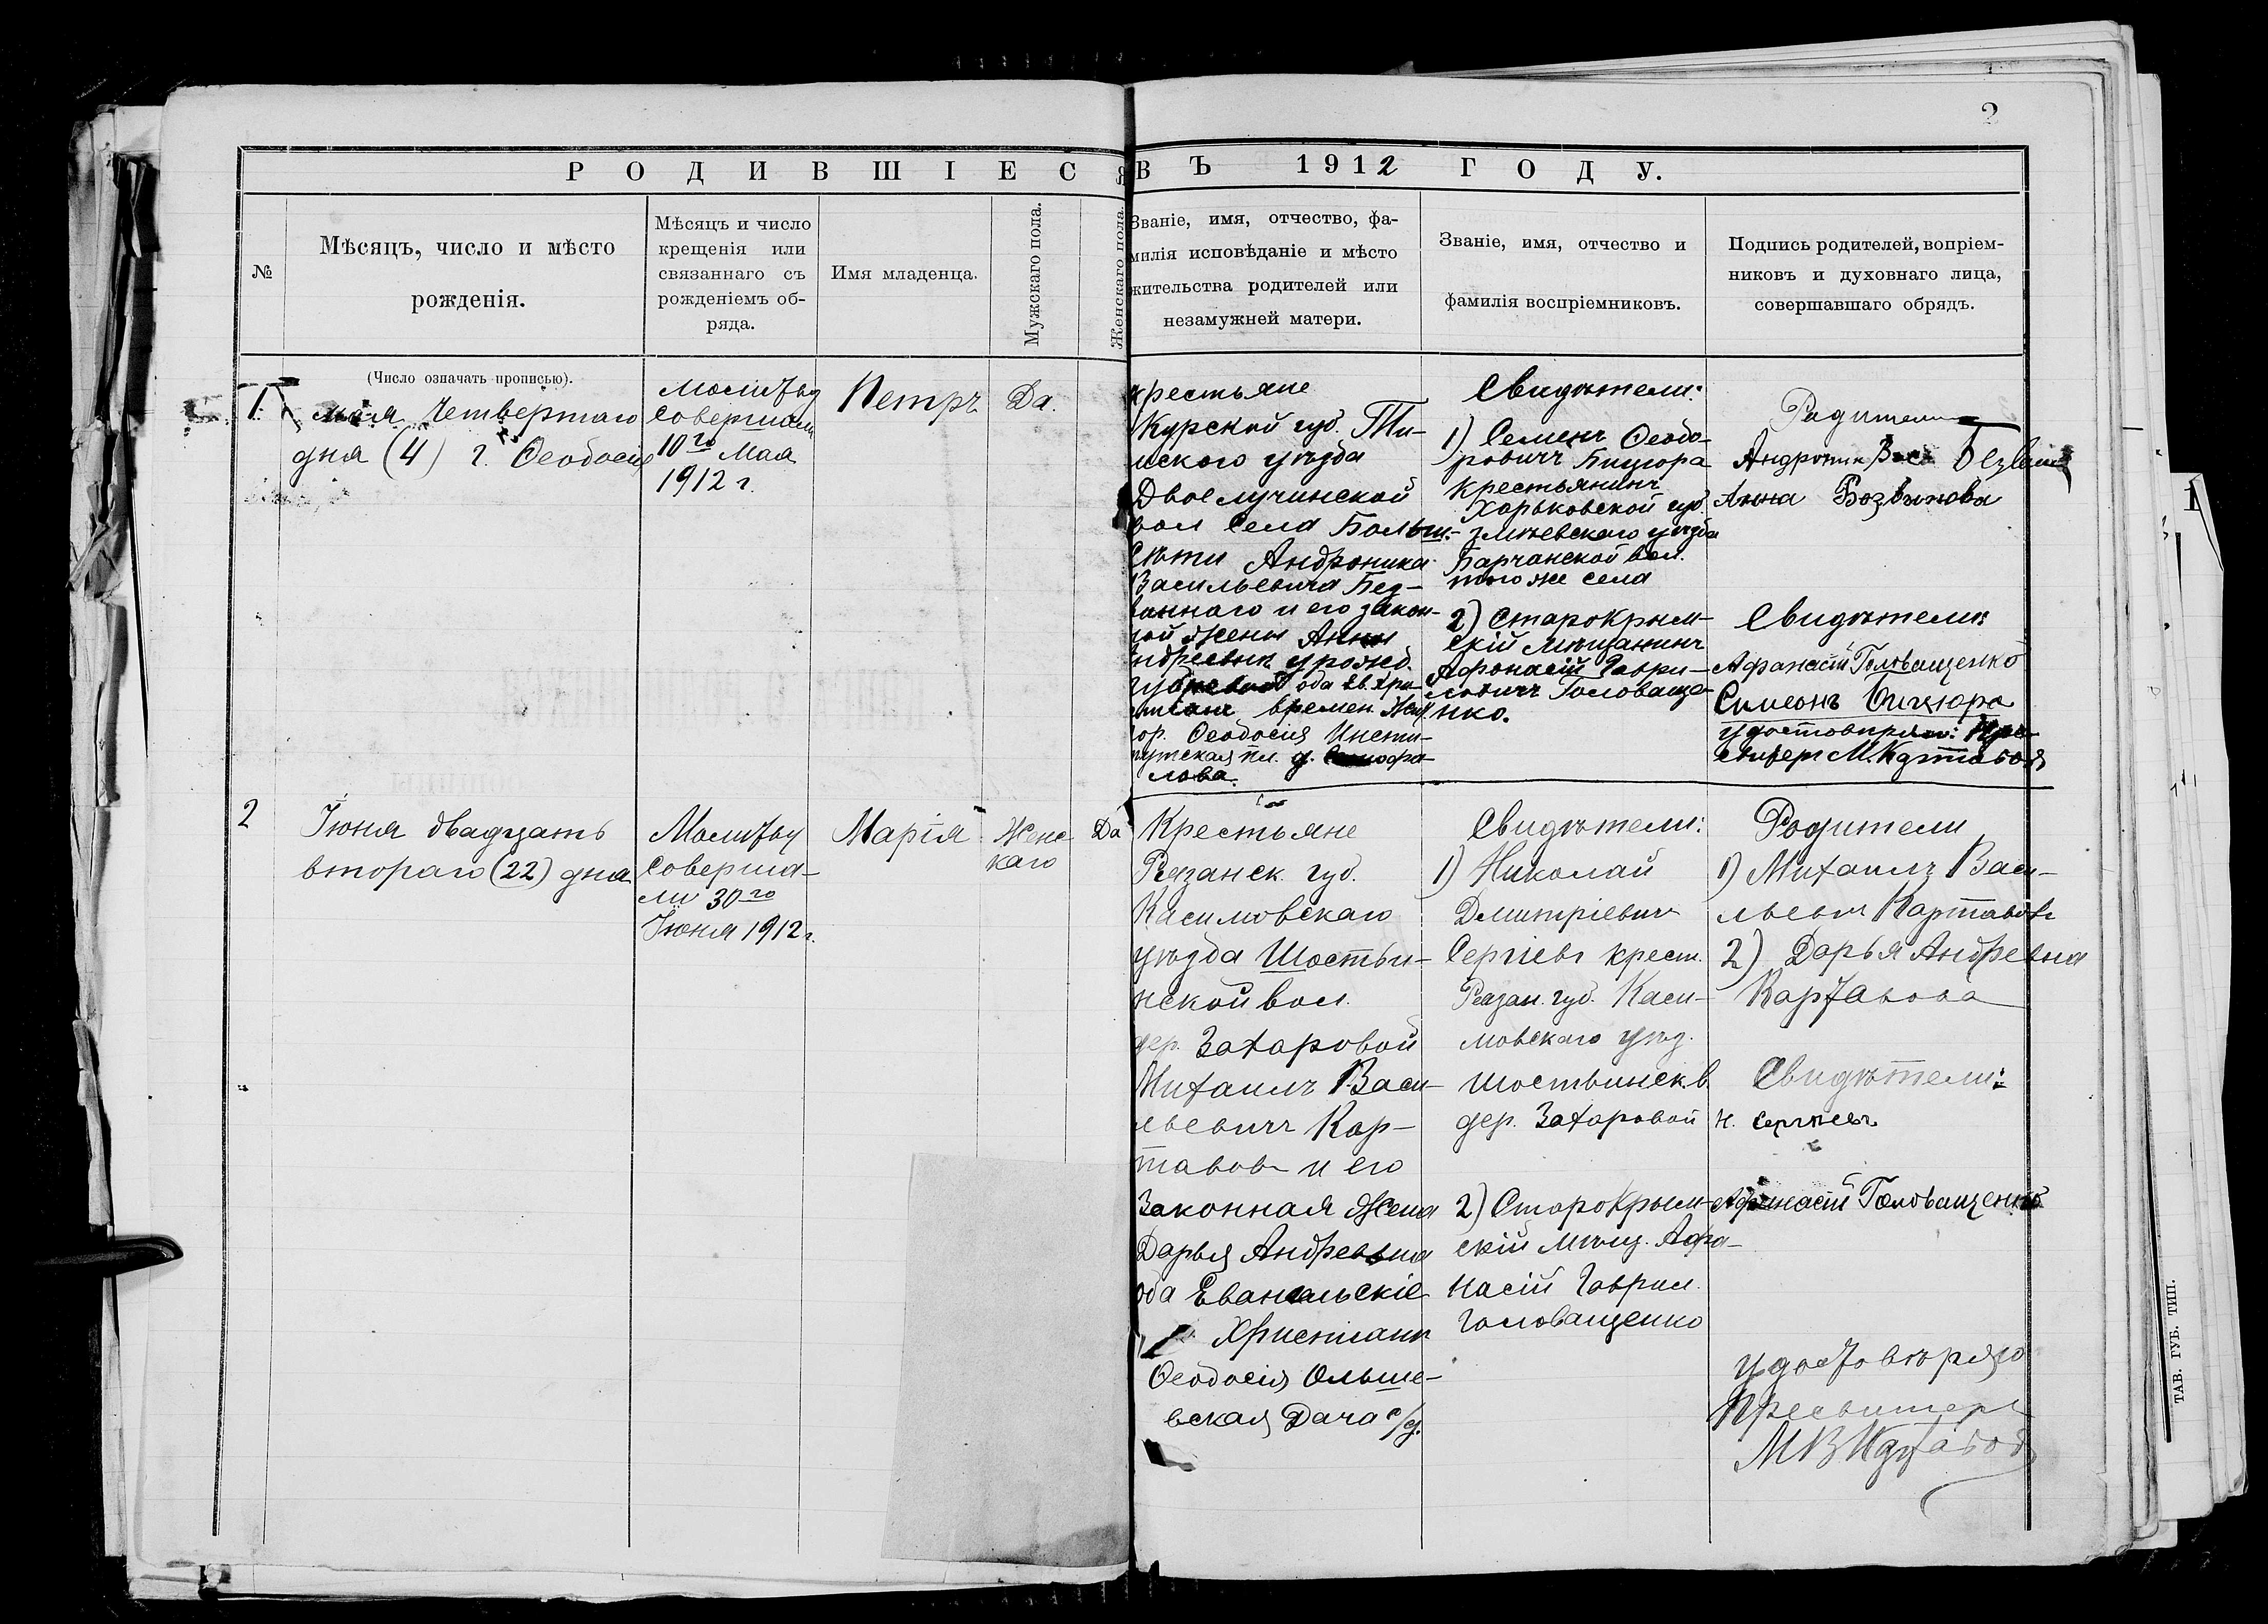 2
РОДИВШІЕСЯ ВЪ 1912 ГОДУ.
№
Мѣсяцъ, число и мѣсто
рожденія.
Мѣсяцъ и число
крещенія или
связаннаго съ
рожденіемъ об-
ряда.
Имя младенца.
Мужскаго пола.
Женскаго пола.
Званіе, имя, отчество, фа-
милія исповѣданіе и мѣсто
жительства родителей или
незамужней матери.
Званіе, имя, отчество и
фамилія воспріемниковъ.
Подпись родителей, вопріем-
никовъ и духовнаго лица,
совершавшаго обрядъ.
(Число означать прописью).
1
мая четвертаго
дня (4) г. Ѳеодосія
Молитву
совершали
10го Мая
1912 г.
Петръ
Да.
крестьяне
Курской губ. Ти-
мского уѣзда
Двоелучинской
вол села Больш.
Андроника
Васильевича Без-
и его закон-
ной жены Анны
Андреевны урожд.
оба Ев. Хри-
времен. жит.
гор. Ѳеодосія Инсти-
тутская пл. д.
лова.
Свидѣтели:
1) Семенъ Ѳеодо-
ровичъ Бицюра
крестьянинъ
Харьковской губ.
змѣевскаго уѣзда
Барчанской вол.
того же села
2) Старокрым-
скій мѣщанинъ
Афонасій Гаври-
ловичъ Головаще-
нко.
Родители
Андроник Вас.
Анна
Свидѣтели:
Афанасій Головащенко
Симеонъ
2
Іюня двадцать
второго (22) дня
Молитву
соверша-
ли 30го
Іюня 1912 г.
Марія
Женс-
каго
Да
Крестьяне
Рязанск. губ.
Касимовскаго
уѣзда Шостьи-
нской вол.
дер. Захаровой
Михаилъ Васи-
льевичъ Кар-
тавовъ и его
Законная жена
Дарья Андреевна
оба Евангельскіе
Христіане
Ѳеодосія Ольше-
вская Дача с/д.
Свидѣтели:
1) Николай
Дмитріевичъ
Сергіевъ крест.
Рязан. губ. Каси-
мовскаго уѣзд.
Шостьинск. в.
дер. Захаровой
2) Старокрым-
скій мѣщ. Афа-
насій Гаврил.
Головащенко
Родители
1) Михаилъ Васи-
льевич Картавовъ
2) Дарья Андревна
Картавова
Свидѣтели:
Н. Сергѣевъ
Афанасій Головащенко
удостовѣряю
Пресвитеръ
ТАВ. ГУБ. ТИП.